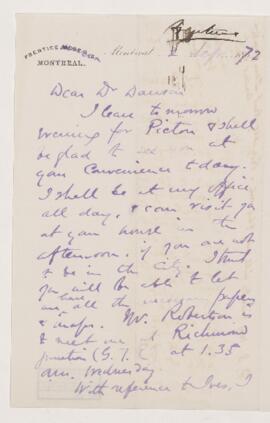 MONTREAL.
Montreal Sep 1872
Dear Dr Dawson
I leave to morrow
evening for Picton & shall
be glad to see you at
your convenience today.
I shall be at my office
all day, & can visit you
at your house in the
afternoon, if you are not
to be in the City. I trust
you will be able to let
me have all the necessary papers
& maps. Mr. Robertson is
to meet me at Richmond
Junction (G. T. at 1.35
a.m. Wednesday
With reference to Ives, I